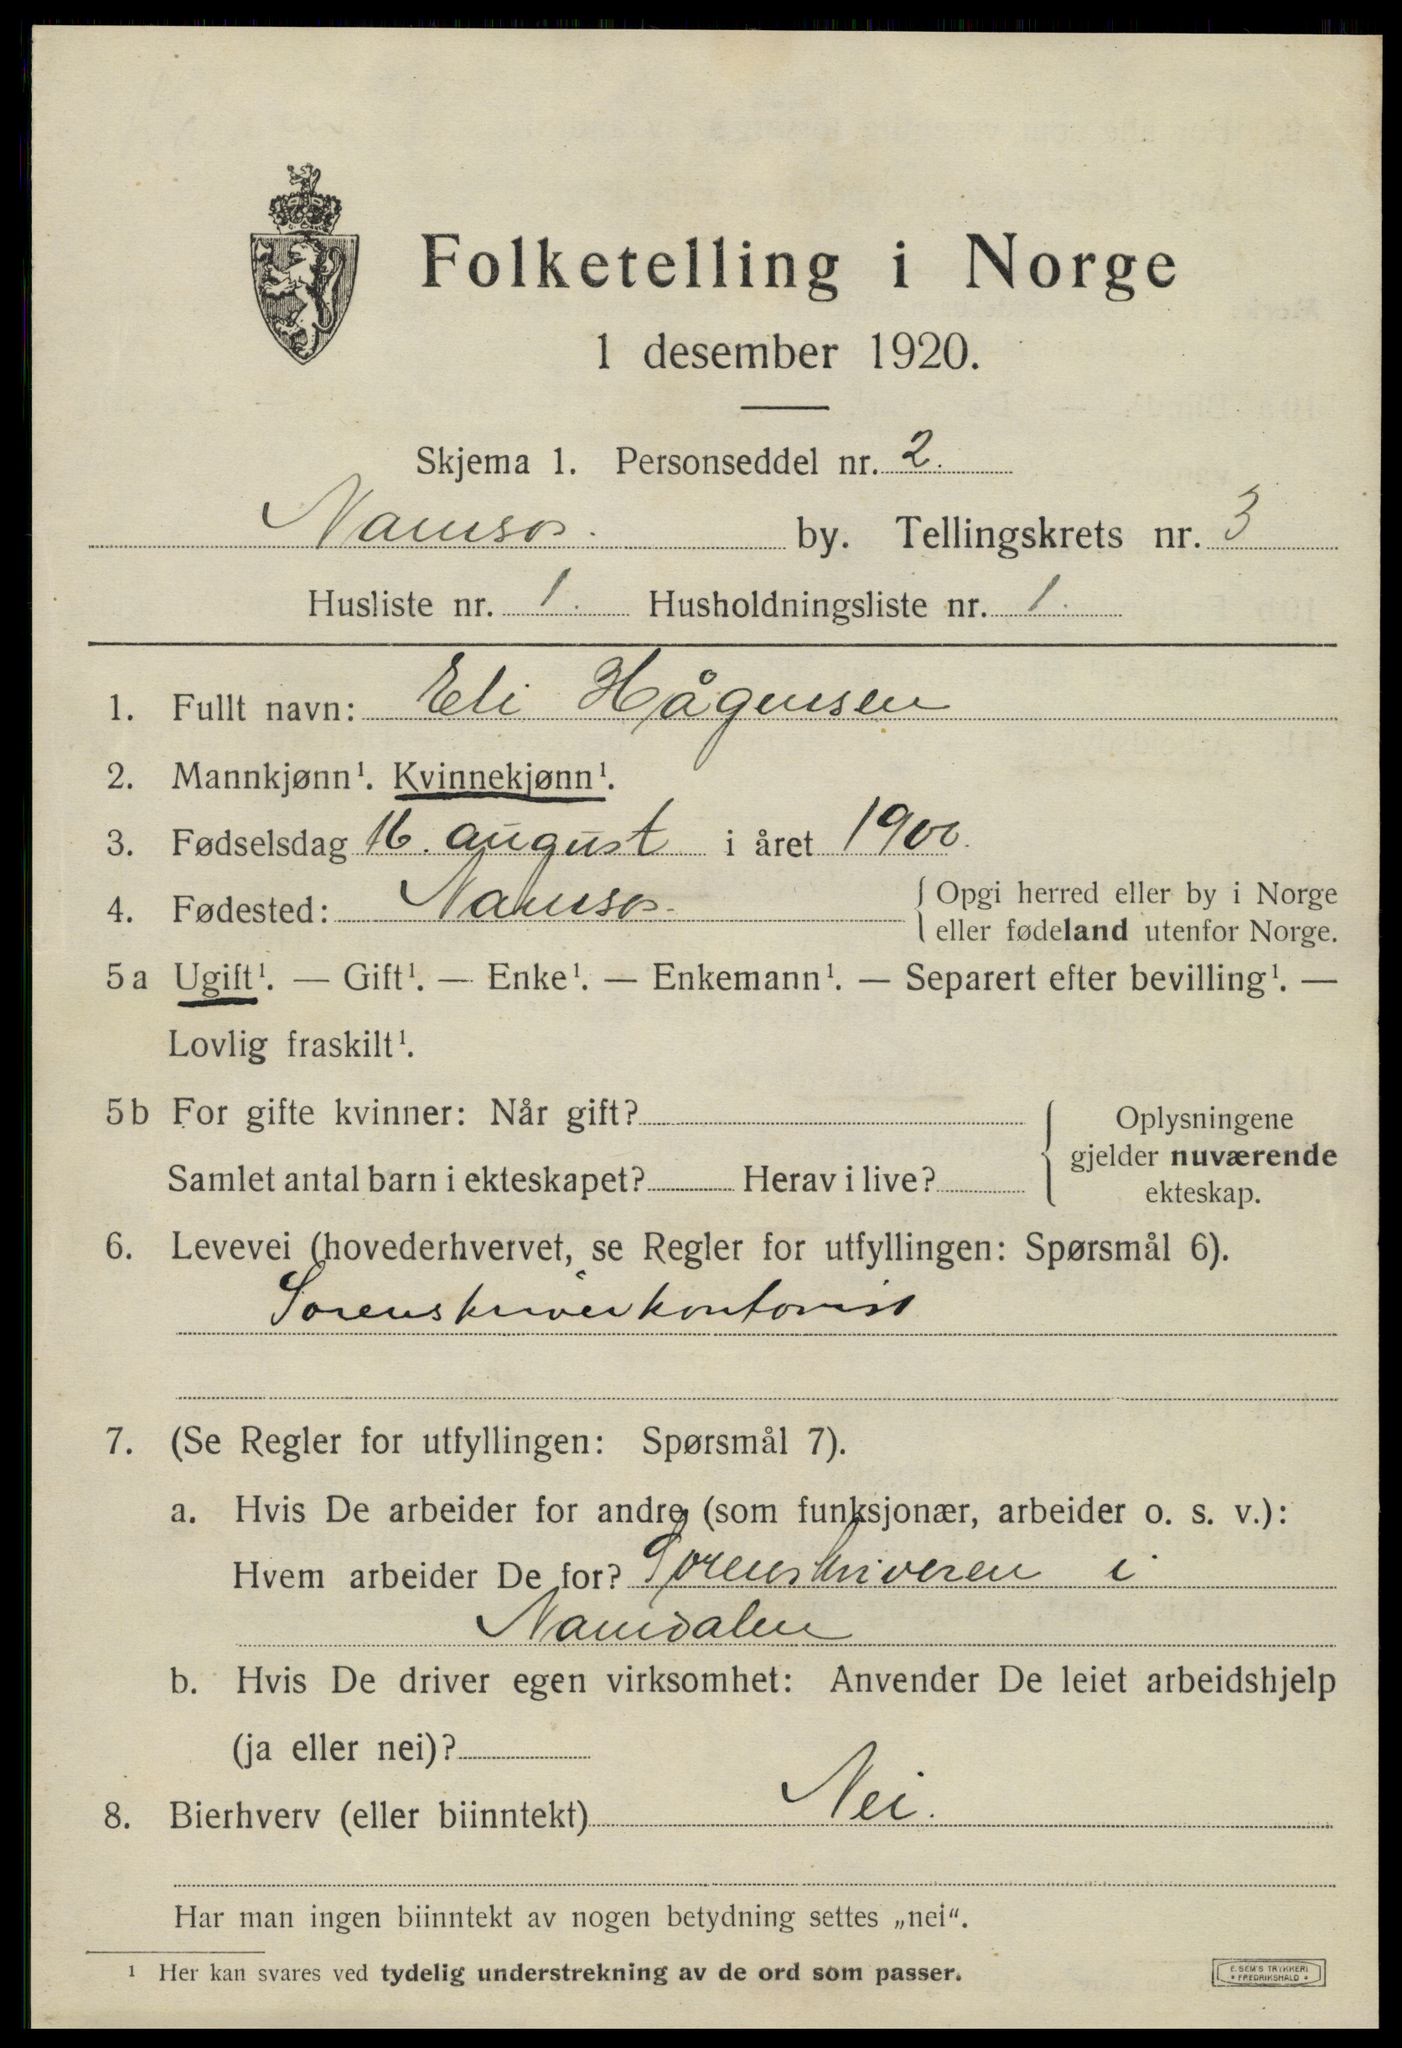 Folketelling i Norge
1 desember 1920.
Skjema 1. Personseddel nr. 2.
Namsos. by. Tellingskrets nr. 3
Husliste nr. 1. Husholdningsliste nr. 1.
1. Fullt navn: Eli Hågensen
2. Mannkjønn¹. Kvinnekjønn¹.
3. Fødselsdag 16. august i året 1900.
4. Fødested: Namsos. { Opgi herred eller by i Norge
eller fødeland utenfor Norge.
5a Ugift¹. — Gift¹. — Enke¹. — Enkemann¹. — Separert efter bevilling¹. —
Lovlig fraskilt¹.
5b For gifte kvinner: Når gift?
Samlet antal barn i ekteskapet? Herav i live?
{ Oplysningene
gjelder nuværende
ekteskap.
6. Levevei (hovederhvervet, se Regler for utfyllingen: Spørsmål 6).
Sorenskriverkontorist
7. (Se Regler for utfyllingen: Spørsmål 7).
a. Hvis De arbeider for andre (som funksjonær, arbeider o. s. v.):
Hvem arbeider De for? Sorenskriveren i
Namdalen
b. Hvis De driver egen virksomhet: Anvender De leiet arbeidshjelp
(ja eller nei)?
8. Bierhverv (eller biinntekt) Nei.
Har man ingen biinntekt av nogen betydning settes „nei".
¹ Her kan svares ved tydelig understrekning av de ord som passer.
E. SEM'S TRYKKERI
• FREDRIKSHALD •